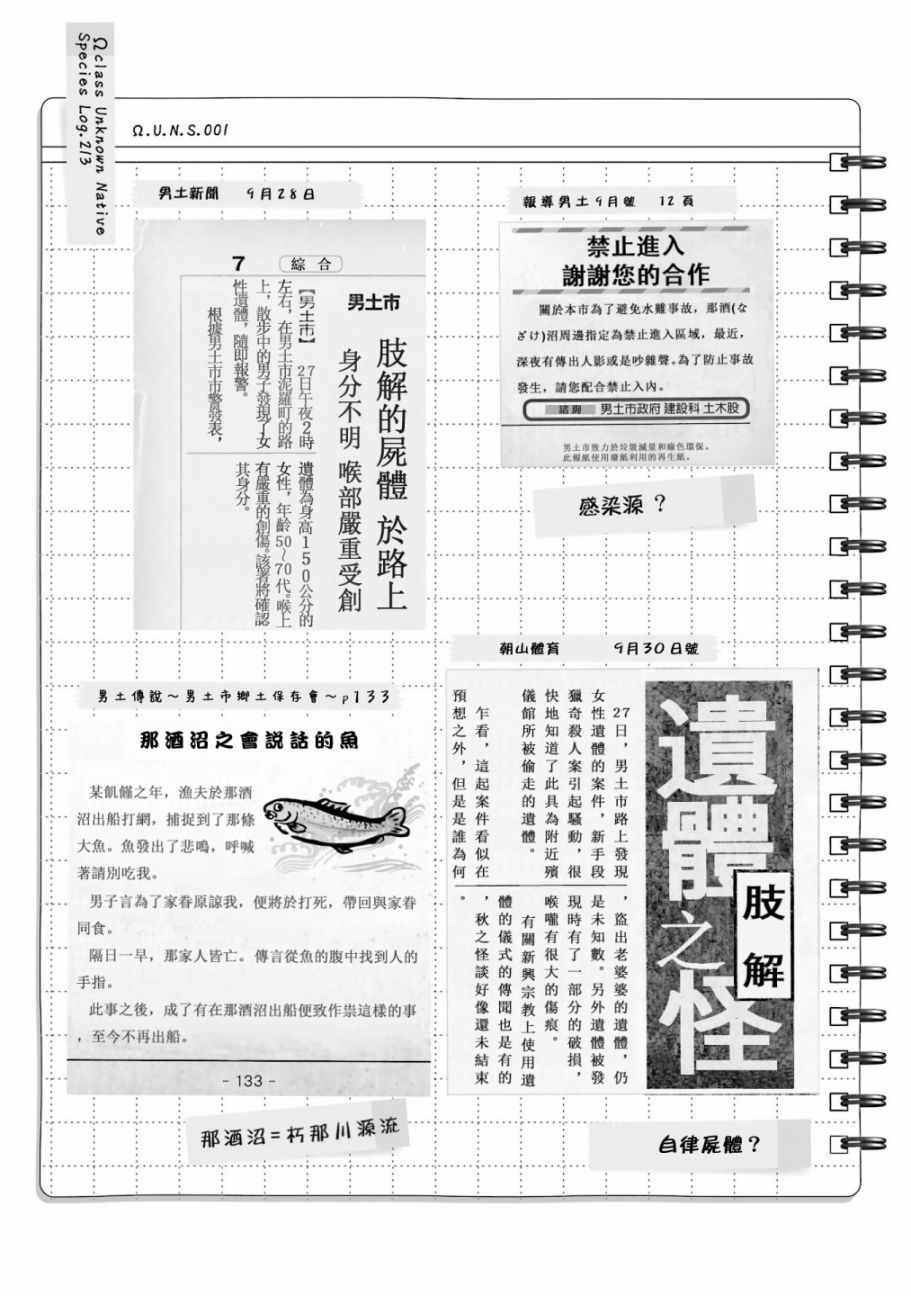 Ω class Unknown Native
Species Log.2/3
Ω.U.N.S.001
男土新聞 9月28日
7
綜合
男土市
肢解的屍體 於路上
身分不明 喉部嚴重受創
【男土市】 27日午夜2時
左右，在男土市泥羅町的路
上，散步中的男子發現了女
性遺體，隨即報警。
根據男土市市警發表，
遺體為身高150公分的
女性，年齡50～70代。喉上
有嚴重的創傷。該署將確認
其身分。
報導男土9月號 12頁
禁止進入
謝謝您的合作
關於本市為了避免水難事故，那酒(な
ざけ)沼周邊指定為禁止進入區域，最近，
深夜有傳出人影或是吵雜聲。為了防止事故
發生，請您配合禁止入內。
諮詢 男土市政府 建設科 土木股
男土市致力於垃圾減量和綠色環保。
此報紙使用廢紙利用的再生紙。
感染源？
男土傳說～男土市鄉土保存會～p133
那酒沼之會説話的魚
某飢饉之年，漁夫於那酒
沼出船打網，捕捉到了那條
大魚。魚發出了悲鳴，呼喊
著請別吃我。
男子言為了家眷原諒我，便將於打死，帶回與家眷
同食。
隔日一早，那家人皆亡。傳言從魚的腹中找到人的
手指。
此事之後，成了有在那酒沼出船便致作祟這樣的事
，至今不再出船。
- 133 -
那酒沼=朽那川源流
朝山體育 9月30日號
遺體之怪
肢解
27日，男土市路上發現
女性遺體的案件，新手段
獵奇殺人案引起騷動，很
快地知道了此具為附近殯
儀館所被偷走的遺體。
乍看，這起案件看似在
預想之外，但是是誰為何
，盜出老婆婆的遺體，仍
是未知數。另外遺體被發
現時有了一部分的破損，
喉嚨有很大的傷痕。
有關新興宗教上使用遺
體的儀式的傳聞也是有的
，秋之怪談好像還未結束
。
自律屍體？